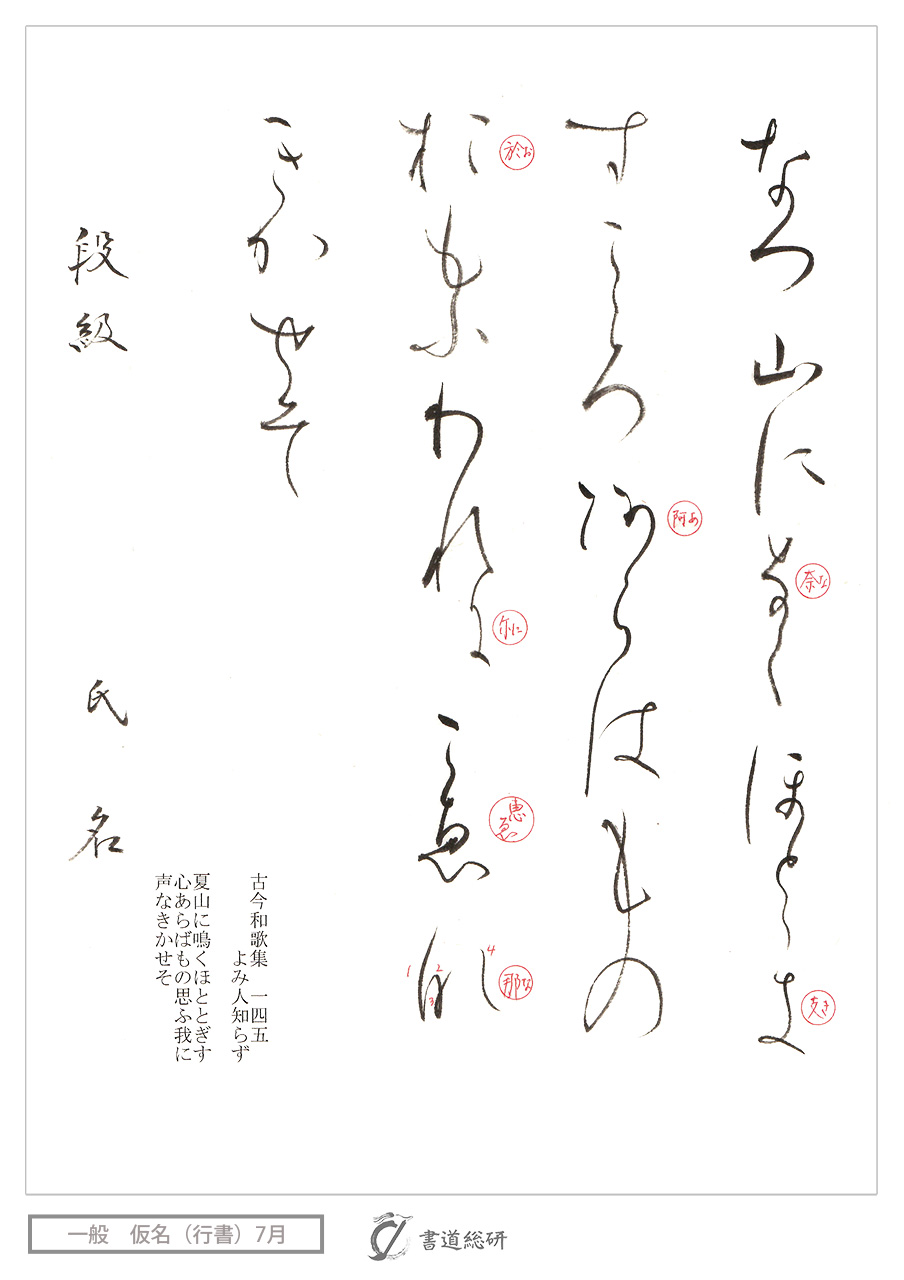 なつ山に奈くほとゝ支
奈な
支き
すこゝろ阿らはもの
阿あ
於もふわれ尓こ恵那
於お
尓に
恵ゑ
那な
1 2 3 4
きかせそ
段級 氏名
古今和歌集 一四五
よみ人知らず
夏山に鳴くほととぎす
心あらばもの思ふ我に
声なきかせそ
一般 仮名（行書）7月
書道総研